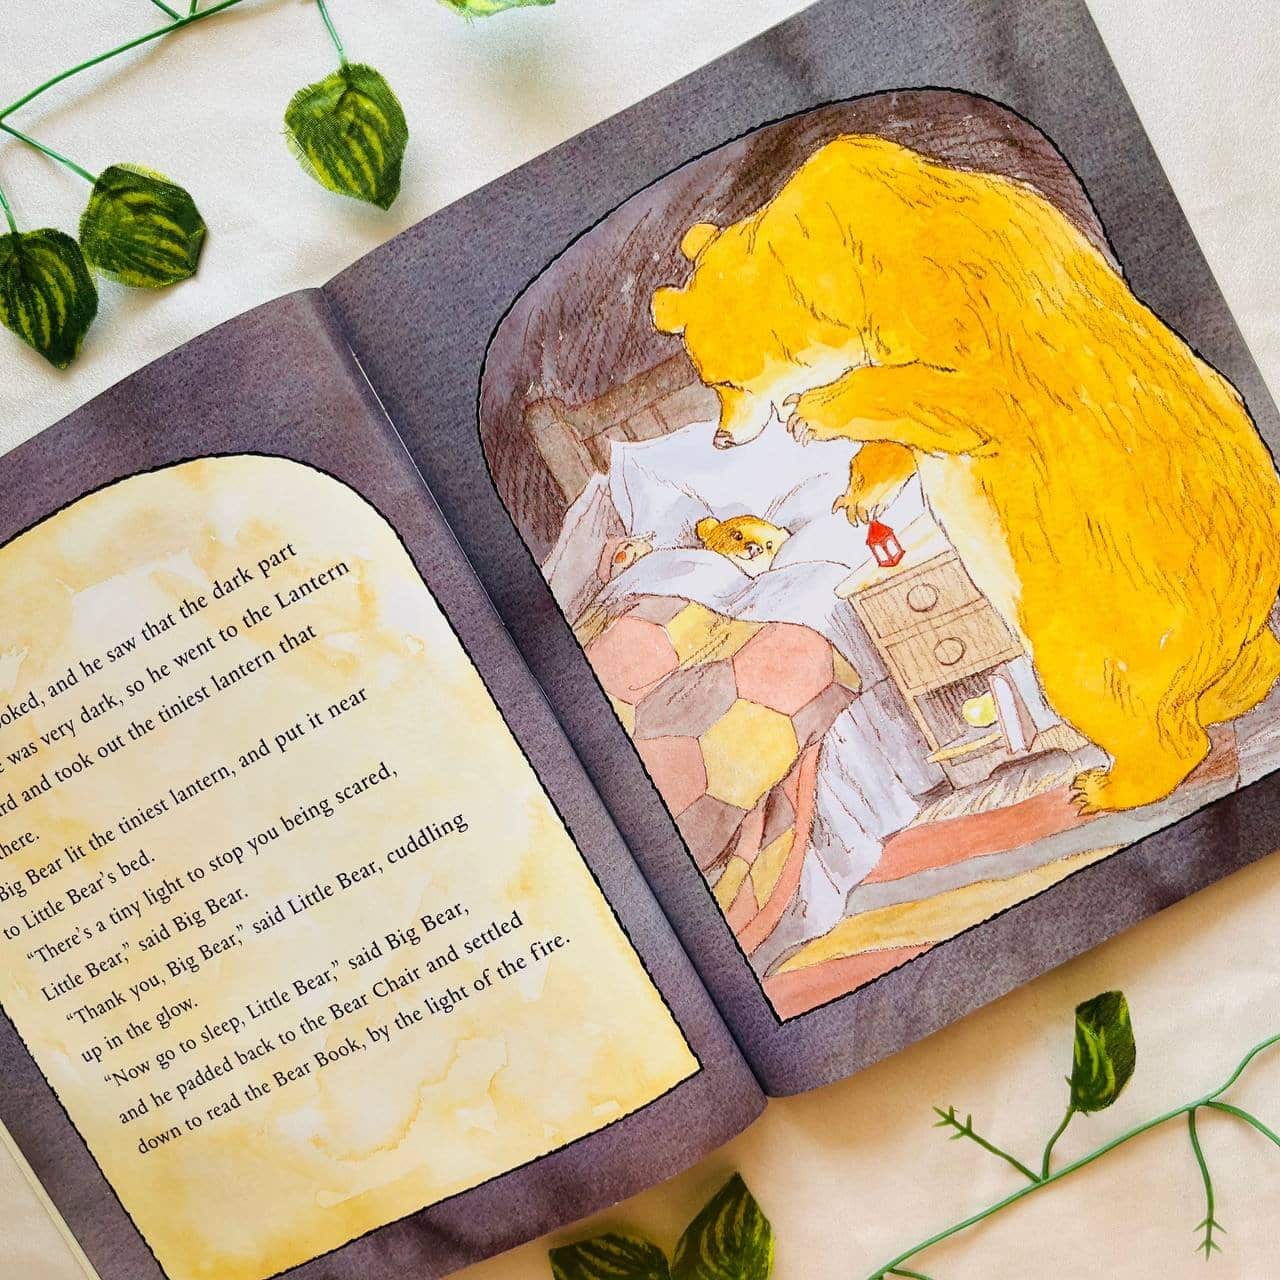 and he saw that the dark part
was very dark, so he went to the Lantern
and took out the tiniest lantern that
Big Bear lit the tiniest lantern, and put it near
to Little Bear's bed.
“There's a tiny light to stop you being scared,
Little Bear,” said Big Bear.
“Thank you, Big Bear,” said Little Bear, cuddling
up in the glow.
“Now go to sleep, Little Bear,” said Big Bear,
and he padded back to the Bear Chair and settled
down to read the Bear Book, by the light of the fire.